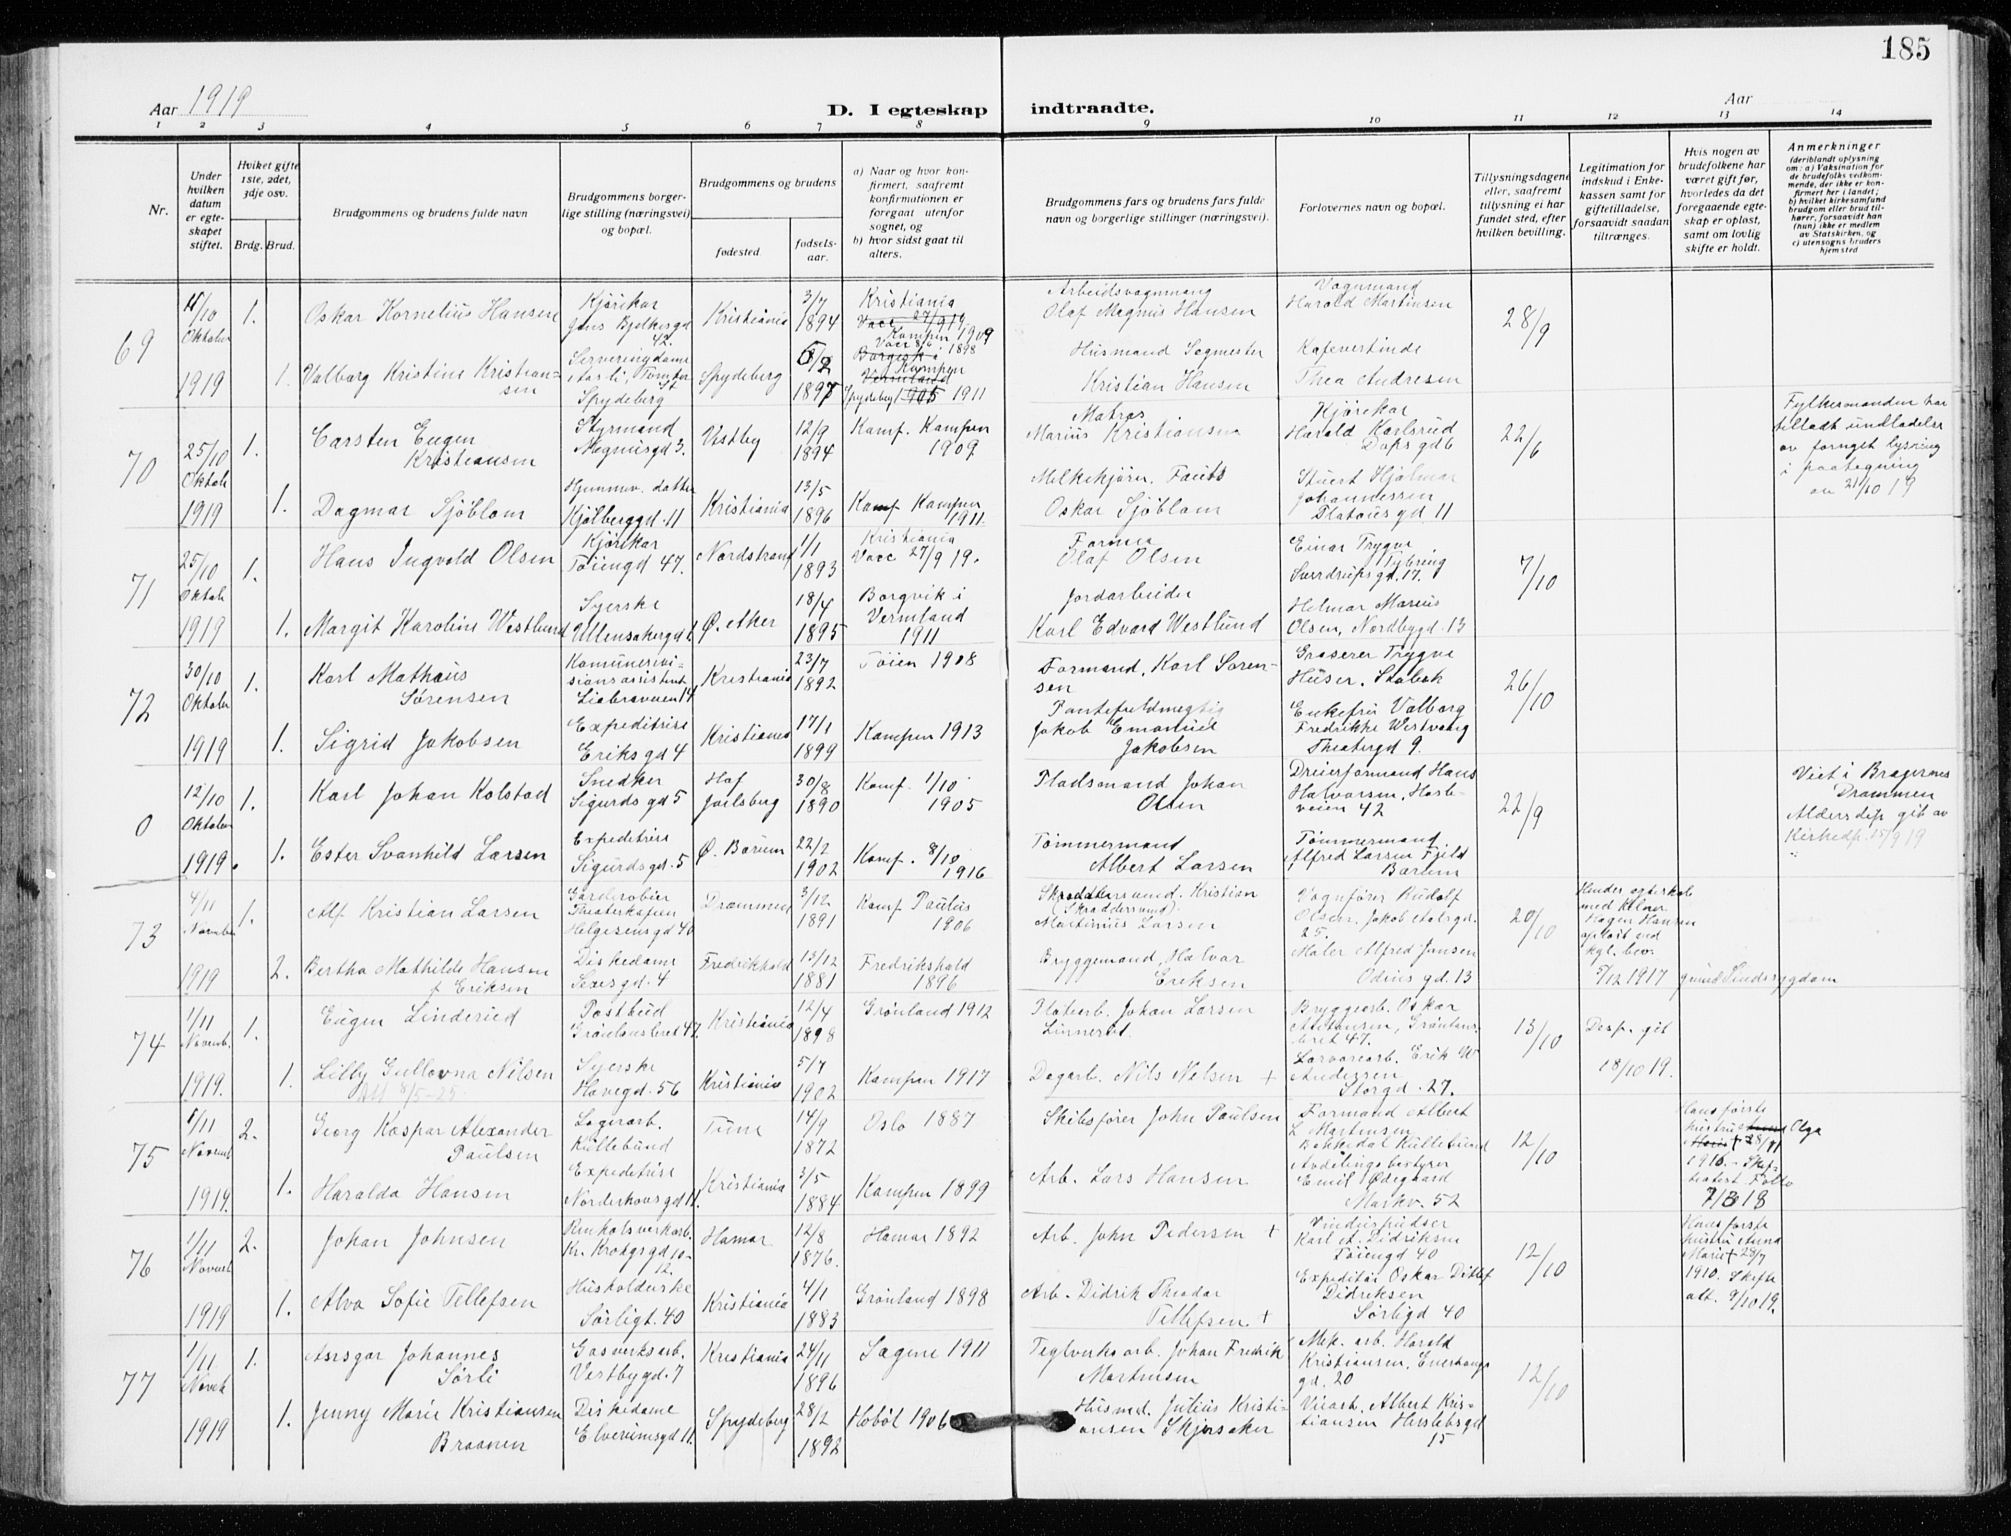 185
Aar 1919
D. I egteskap indtraadte.
Aar
1 2 3 4 5 6 7 8 9 10 11 12 13 14
Nr.
Under hvilken datum er egteskapet stiftet.
Hviket gifte 1ste, 2det, 3dje osv.
Brdg. Brud.
Brudgommens og brudens fulde navn
Brudgommens borgerlige stilling (næringsvei) og bopæl.
Brudgommens og brudens
fødested
fødselsaar.
a) Naar og hvor konfirmert, saafremt konfirmationen er foregaat utenfor sognet, og
b) hvor sidst gaat til alters.
Brudgommens fars og brudens fars fulde navn og borgerlige stillinger (næringsvei).
Forlovernes navn og bopæl.
Tillysningsdagene eller, saafremt tillysning ei har fundet sted, efter hvilken bevilling.
Legitimation for indskud i Enkekassen samt for giftetilladelse, forsaavidt saadan tiltrænges.
Hvis nogen av brudefolkene har været gift før, hvorledes da det foregaaende egteskap er opløst, samt om lovlig skifte er holdt.
Anmerkninger
(deriblandt oplysning om: a) Vaksination for de brudefolks vedkommende, der ikke er konfirmert her i landet; b) hvilket kirkesamfund brudgom eller brud tilhører, forsaavidt han (hun) ikke er medlem av Statskirken, og c) utensogns bruders hjemsted
69
Oktober 1919
1. Oskar Kornelius Hansen
Kjørekar
Kristiania
3/7 1894
Kristiania
Kampen 1909
Arbeidsvognmand Olaf Magnus Hansen
Vognmand Harald Martinsen
28/9
1. Valborg Kristine Kristiansen
Spydeberg
Spydeberg
Spydeberg 1911
Husmand Sagmester Kristian Hansen
Kafevertinde Thea Andresen
70
25/10 Oktob 1919
1. Carsten Eugen Kristiansen
Styrmand Magnusgd 3.
Vestby
12/9 1894
Konf. Kampen 1909
Matros Marius Kristiansen
Kjørekar Harald Karlsrud Dopsgd 6
22/6
Fylkesmanden har tilladt undladelse av fornyet lysning i paategning av 21/10 19
1. Dagmar Sjöblom
Hjemmev. datter Kjølberggd. 11
Kristiania
13/5 1896
Konf Kampen 1911.
Oskar Sjöblom
Stuert Hjalmar Johannessen Platousgd 11
71
25/10 Oktob 1919
1. Hans Ingvald Olsen
Kjørekar Tøiengd 47.
Nordstrand
1/1 1893
Kristiania Vacc 27/9 19.
Olaf Olsen
Einar Trygve Sverdrupsgd. 17.
7/10
1. Margit Karoline Westlund
Syerske Ullensakergd
Ø. Aker
18/4 1895
Borgvik i Vermland 1911
Jordarbeider Karl Edvard Westlund
Helmar Marius Olsen, Nordbygd. 13
72
30/10 Oktober 1919
1. Karl Mathæus Sørensen
Kristiania
23/7 1892
Tøien 1908
Formand, Karl Sørensen
Graserer Trygve Huser, Stabæk
26/10
1. Sigrid Jakobsen
Expeditrise Eriksgd 4
Kristiania
17/1 1899
Kampen 1913
Jakob Emanuel Jakobsen
Enkefru Valborg Fredrikke Westvang Theatergd 9.
0
12/10 Oktober 1919.
1. Karl Johan Kolstad
Snedker Sigurdsgd 5
Hof Jarlsberg
30/8 1890
Konf. 1/10 1905
Pladsmand Johan Olsen
Dreierformand Hans Halvorsen, Hasleveien 42
22/9
Viet i Bragernes Drammen
Aldersdisp git av Kirkedp. 15/9 19
1. Ester Svanhild Larsen
Expeditrise Sigurdsgd. 5
Ø. Bærum
22/2 1902
Konf. 8/10 1916
Tømmermand Albert Larsen
Tømmermand Alfred Larsen Fjeld Bærum
73
4/11 Novembr 1919
1. Alf Kristian Larsen
Garderobier Theaterkafeen Helgesensgd 40
Drammen
3/12 1891
Konf Paulus 1906
Kristian (Skræddersvend). Martinius Larsen
Vognfører Rudolf Olsen. Jakob Aalsgd. 25.
20/10
Hendes egteskab med Kelner Hagen Hansen opløst ved kgl. bev. 5/12 1917
2. Bertha Mathilde Hansen f. Eriksen
Diskedame Sexesgd. 4
Fredrikhald
13/12 1881
Fredrikshald 1896
Bryggemand, Halvor Eriksen
Maler Alfred Jansen Odinsgd. 13
74
1/11 Novemb. 1919.
1. Eugen Linderud
Postbud Grønlandsleret 47.
Kristiania
12/4 1898
Grønland 1912
Platearb. Johan Larsen
Bryggeriarb. Oskar Grønlandsleret 47.
13/10
Disp. git 18/10 19.
1. Lilly Gullovna Nilsen
8/5-25.
Syerske Havegd. 56
Kristiania
5/7 1902
Kampen 1917
Dagarb. Nils Nelsen +
Erik W Andersen Storgd. 27.
75
1/11 Novemb 1919.
2. Georg Kaspar Alexander Paulsen
Lagerarb. Kullebund
Tune
14/9 1872
Oslo 1887
Skibsfører John Paulsen
Formand Albert L Martinsen Bakkedal Kullebund
12/10
Hans første hustru Olga + 28/11 1916. - Follo 7/3 18
1. Haralda Hansen
Expeditrise Norderhovsgd 11.
Kristiania
3/5 1884
Kampen 1899
Arb. Lars Hansen
Avdelingsbestyrer Emil Ødegaard Markv. 52
76
1/11 Novemb 1919
2. Johan Johnsen
Renholsverksarb. Kr. Krohgsgd 10-12.
Hamar
12/8 1876.
Hamar 1892
Arb. John Pedersen +
Vinduspudser Karl A. Didriksen Tøiengd 40
12/10
Hans første hustru Anna Marie + 28/7 1910. Skifte att. 9/10 19.
1. Alva Sofie Tellefsen
Husholderske Sørligt. 40
Kristiania
4/1 1883
Grønland 1898
Arb. Didrik Theodor Tellefsen +
Expeditør Oskar Ditlef Didriksen Sørligd 40
77
1/11 Novemb 1919
1. Asrsgar Johannes Sørli
Gasverksarb. Vestbygd. 7
Kristiania
24/11 1896
Sagene 1911
Teglverksarb. Johan Fredrik Martinsen
Mek. arb. Harald Kristiansen, Enerhaugsgd. 20
12/10
1. Jenny Marie Kristiansen Braanen
Diskedame Elverumsgd 11.
Spydeberg
28/2 1892
Hobøl 1906
Husmd. Julius Kristiansen Skjørsaker
Albert Kristiansen Herslebsgd 15